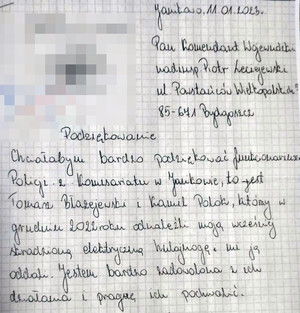 Janikowo, 11.01.2023.
Pan Komendant Wojewódzki
nadinsp Piotr Leciejewski
ul Powstańców Wielkopolskich 7
85-671 Bydgoszcz
Podziękowanie
Chciałabym bardzo podziękować funkcjonariuszom
Policji z Komisariatu w Janikowie, to jest
Tomasz Błażejewski i Kamil Polok, którzy w
grudniu 2022 roku odnaleźli moją wcześniej
skradzioną elektryczną hulajnogę, mi ją
oddali. Jestem bardzo zadowolona z ich
działania i pragnę ich pochwalić.